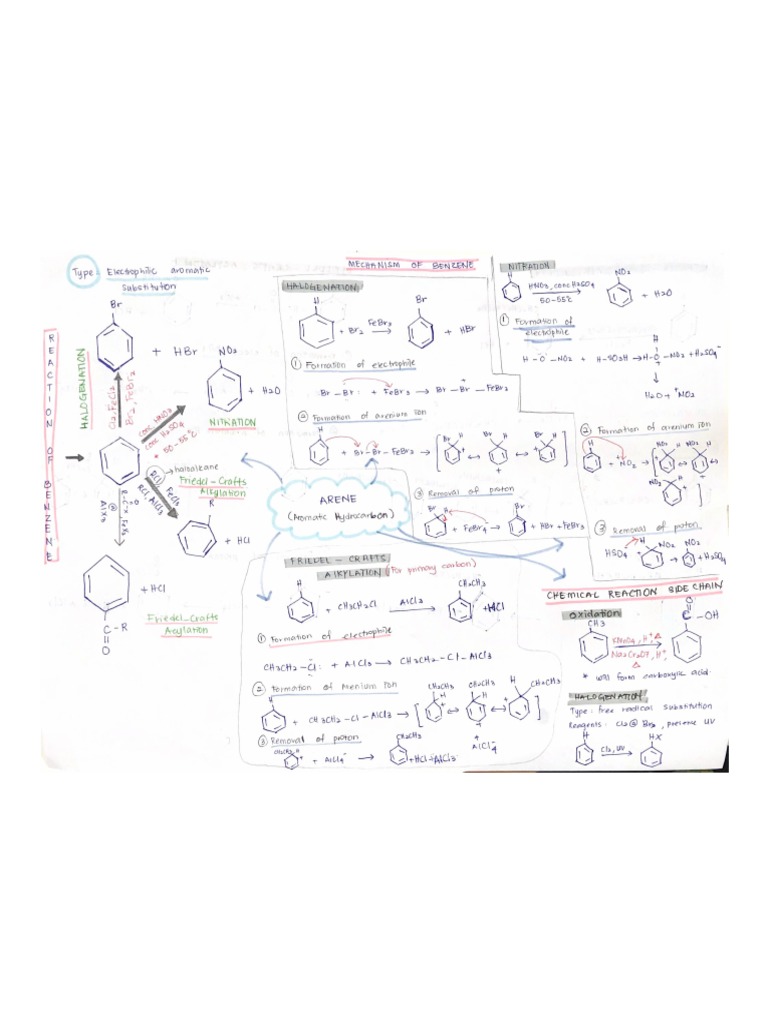 Type: Electrophilic aromatic
Substitution
REACTION OF BENZENE
HALOGENATION
Br
+ HBr
Cl2, FeCl3
Br2, FeBr3
NO2
+ H2O
NITRATION
conc HNO3
conc H2SO4
* 50-55°C
RCl → haloalkane
FeCl3
RCl, AlCl3
Friedel-Crafts
Alkylation
R
+ HCl
+ HCl
C-R
O
Friedel-Crafts
Acylation
MECHANISM OF BENZENE
HALOGENATION
H
+ Br2
FeBr3
Br
+ HBr
① Formation of electrophile
Br-Br: + FeBr3 → Br-Br-FeBr3
② Formation of arenium ion
H
+ Br-Br-FeBr3 →
③ Removal of proton
+ FeBr4 → + HBr + FeBr3
Br
NITRATION
H
HNO3, conc H2SO4
50-55°C
NO2
+ H2O
① Formation of
electrophile
H-O-NO2 + H-SO3H → H-O-NO2 + H2SO4-
H
H2O + +NO2
② Formation of arenium ion
H
+ NO2 →
③ Removal of proton
HSO4
H NO2
NO2
+ H2SO4
ARENE
(Aromatic Hydrocarbon)
FRIEDEL-CRAFTS
ALKYLATION (For primary carbon)
H
+ CH3CH2Cl
AlCl3
CH2CH3
+ HCl
① Formation of electrophile
CH3CH2-Cl: + AlCl3 → CH3CH2-Cl-AlCl3
② Formation of Arenium Ion
H
+ CH3CH2-Cl-AlCl3 →
CH2CH3
+ AlCl4-
③ Removal of proton
CH2CH3 H
+ AlCl4- →
CH2CH3
+ HCl + AlCl3
CHEMICAL REACTION SIDE CHAIN
Oxidation
CH3
KMnO4, H+, △
Na2Cr2O7, H+,
△
O
C-OH
* will form carboxylic acid
HALOGENATION
Type: free radical substitution
Reagents: Cl2 @ Br2, presence UV
H
Cl2, UV
HX